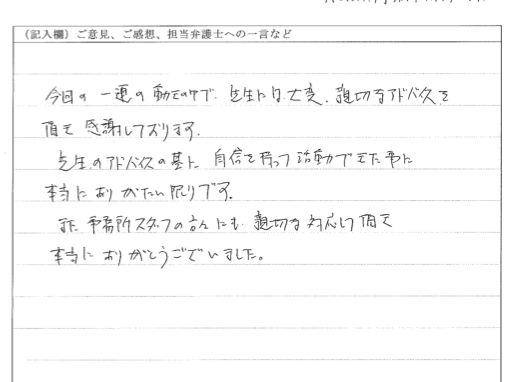 (記入欄) ご意見、ご感想、担当弁護士への一言など
今回の一連の動きの中で、先生には大変、親切なアドバイスを
頂き感謝しております。
先生のアドバイスの基に自信を持って活動できた事に
本当にありがたい限りです。
また事務所スタッフの方々にも親切な対応して頂き
本当にありがとうございました。